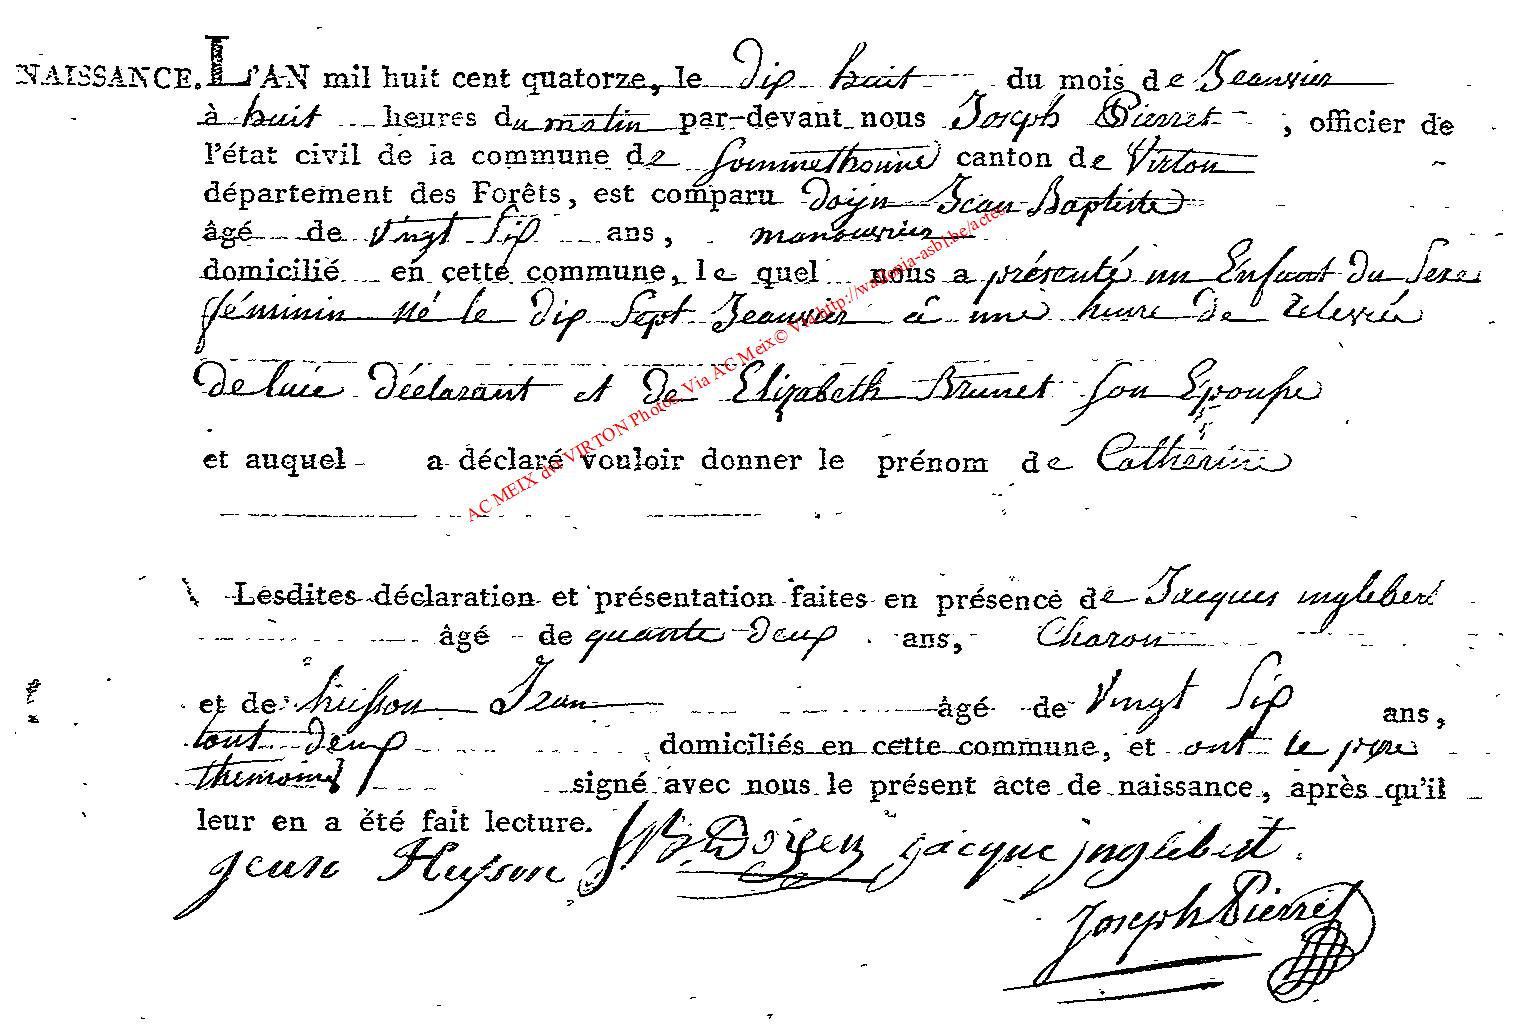 NAISSANCE. L'AN mil huit cent quatorze, le dix huit du mois de Jeanvier
à huit heures du matin par-devant nous Joseph Pierret, officier de
l'état civil de la commune de Sommethonne canton de Virton
département des Forêts, est comparu Doijn Jean Baptiste
âgé de vingt six ans, manouvrier
domicilié en cette commune, le quel nous a présenté un Enfant du Sexe
féminin né le dix Sept Jeanvier à une heure de relevée
de luie déclarant et de Elizabeth Brunet Son Epouse
et auquel a déclaré vouloir donner le prénom de Catherine
AC MEIX dvt VIRTON Photos Via AC Meix© Via http://wallonia-asbl.be/actes
Lesdites déclaration et présentation faites en présence de Jacques inglebert
âgé de quarante deux ans, Charon
et de husson Jean âgé de Vingt Six ans,
tout deux domiciliés en cette commune, et ont le pere
themoins signé avec nous le présent acte de naissance, après qu'il
leur en a été fait lecture.
Jean Husson JB Doijen jacque jnglebert
Joseph Pierret